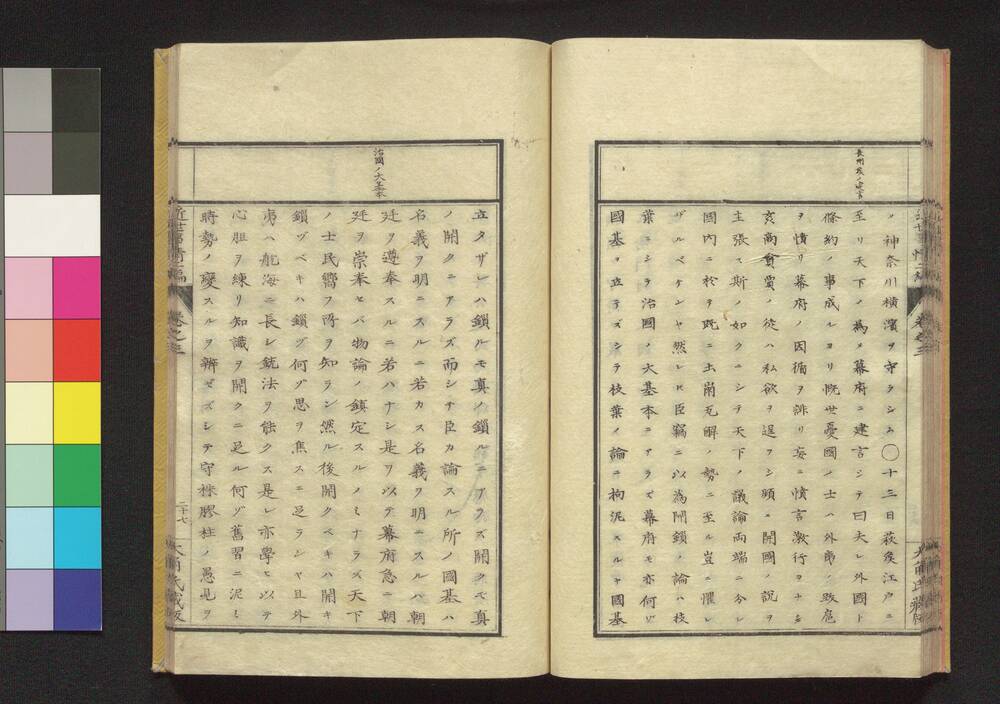 長州侯ノ建言
ノ神奈川橫濱ヲ守ラシム〇十三日萩侯江戸ニ
至リ天下ノ為メ幕府ニ建言シテ曰夫レ外國ト
條約ノ事成ルヨリ慨世憂國ノ士ハ外夷ノ跋扈
ヲ憤リ幕府ノ因循ヲ誹リ妄ニ憤言激行ヲナシ
亥商賣ノ徒ハ私欲ヲ逞フシ頻ニ開國ノ説ヲ
主張ス斯ノ如クニシテ天下ノ議論両端ニ分レ
國内ニ於テ既ニ土崩瓦解ノ勢ニ至ル豈ニ懼レ
ザルベケンヤ然レヒ臣竊ニ以為開鎖ノ論ハ枝
葉ニシテ治國ノ大基本ニアラズ幕府モ亦何ゾ
國基ノ立テズシテ枝葉ノ論ニ拘泥スルヤ國基
治國ノ大基本
立タザレハ鎖ルモ真ノ鎖ルニアラズ開クモ真
ノ開クニアラズ而シテ臣カ論スル所ノ國基ハ
名義ヲ明ニスルニ若カス名義ヲ明ニスルハ朝
廷ヲ遵奉スルニ若ハナシ是ヲ以テ幕府急ニ朝
廷ヲ崇奉セバ物論ノ鎮定スルノミナラズ天下
ノ士民嚮フ所ヲ知ラン然ル後開クベキハ開キ
鎖ヅベキハ鎖ヅ何ゾ思ヲ焦スニ足ランヤ且外
夷ハ航海ニ長シ銃法ヲ能クス是レ亦學ヒ以テ
心胆ヲ練リ知識ヲ開クニ足ル何ゾ舊習ニ泥ミ
時勢ノ變スルヲ辨ゼズシテ守株膠柱ノ愚見ヲ
近世事情二編
卷之三
二十七
大角氏藏版